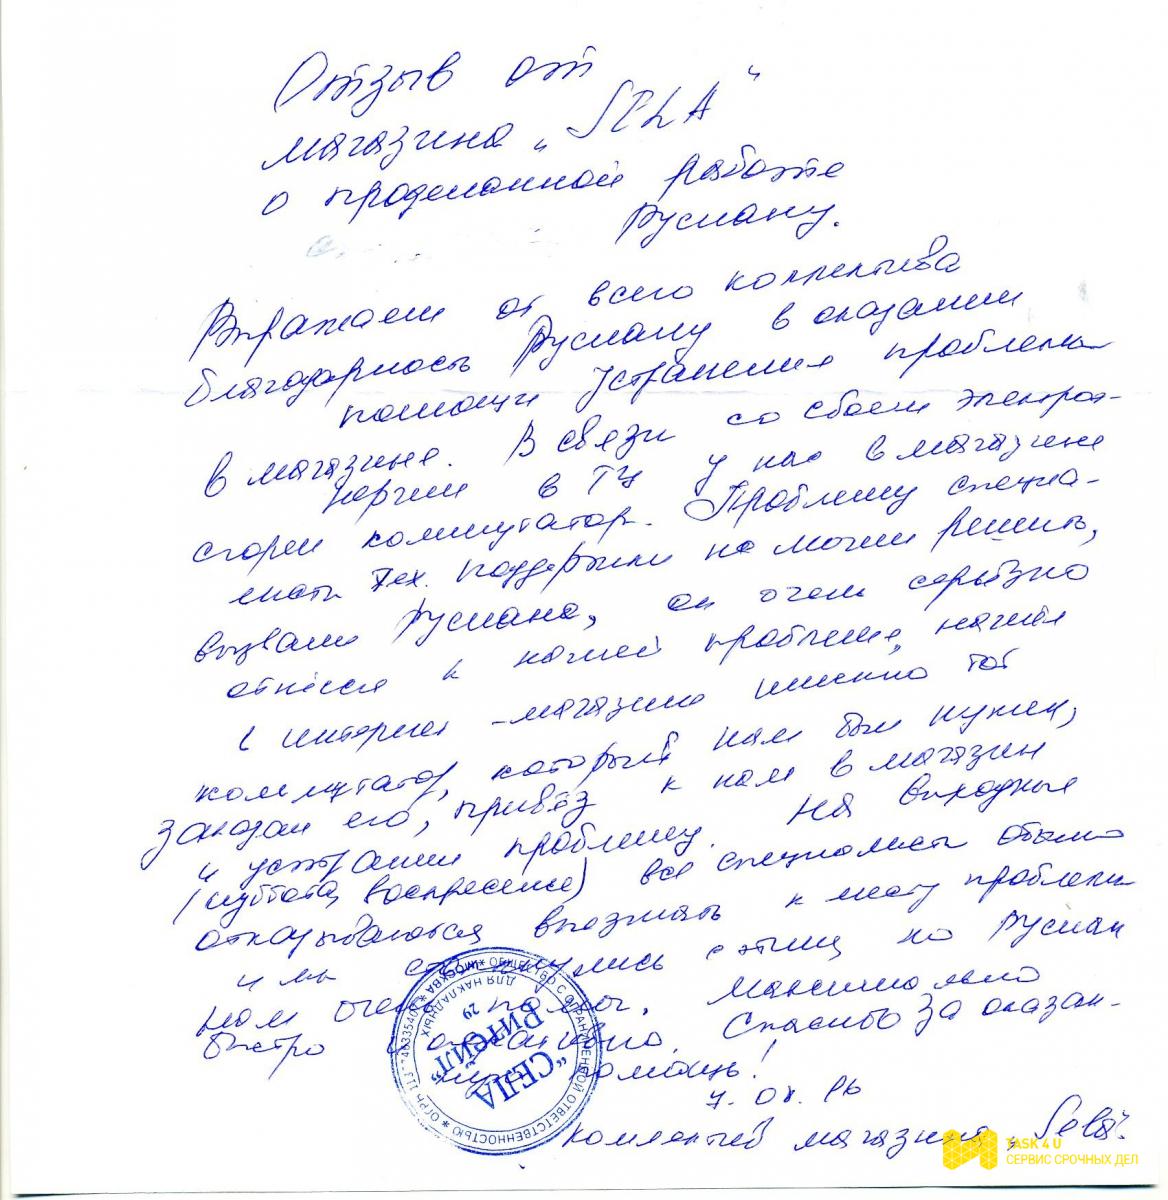 Отзыв от
магазина "SELA"
о проделанной работе
Руслану.
Выражаем от всего коллектива
благодарность Руслану в оказании
помощи устранения проблемы
в магазине. В связи со сбоем электроэ-
нергии в ТЦ у нас в магазине
сгорел коммутатор. Проблему специа-
листы тех. поддержки не могли решить,
вызвали Руслана, он очень серьёзно
отнёсся к нашей проблеме, нашёл
в интернет-магазине именно тот
коммутатор, который нам был нужен,
заказал его, привёз к нам в магазин
и устранил проблему. На выходные
(суббота, воскресение) все специалисты обычно
отказываются выезжать к месту проблемы
и мы столкнулись с этим, но Руслан
нам очень помог, максимально
быстро. Спасибо за оказан-
ную помощь!
коллектив магазина "Sela".
* ОБЩЕСТВО С ОГРАНИЧЕННОЙ ОТВЕТСТВЕННОСТЬЮ * ОГРН * МОСКВА
ДЛЯ НАКЛАДНЫХ
29
"СЕЛА
РИТЕЙЛ"
TASK 4 U
СЕРВИС СРОЧНЫХ ДЕЛ